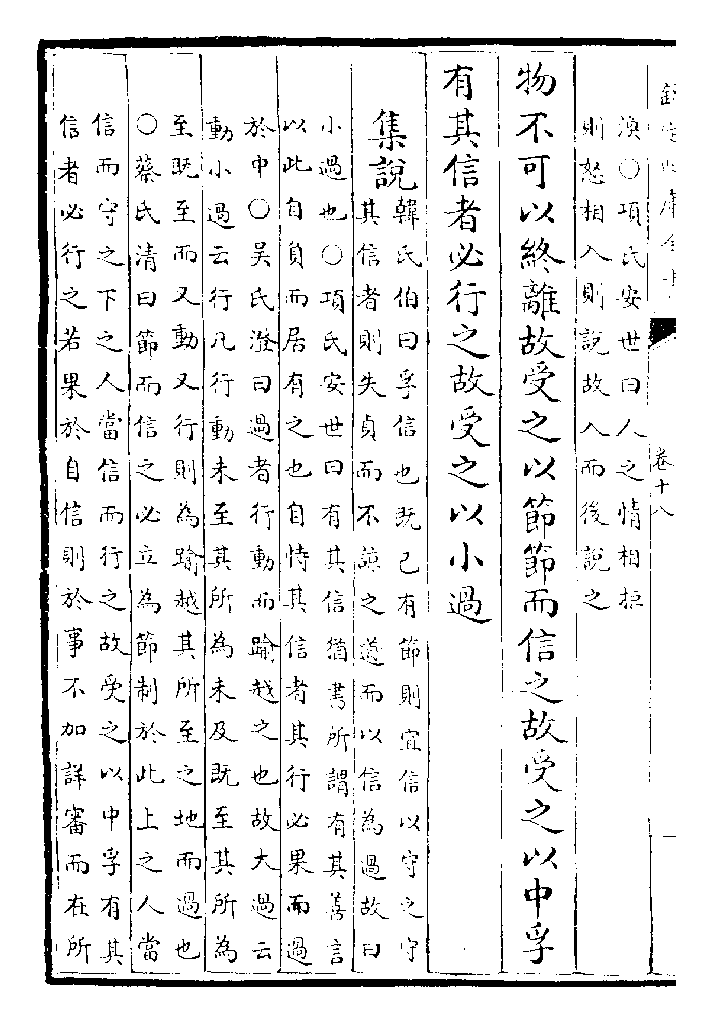 欽定四庫全書
卷十八
渙○項氏安世曰人之情相拒
則怒相入則說故入而後說之
物不可以終離故受之以節節而信之故受之以中孚
有其信者必行之故受之以小過
集說
韓氏伯曰孚信也既已有節則宜信以守之守
其信者則失貞而不諒之道而以信為過故曰
小過也○項氏安世曰有其信猶書所謂有其善言
以此自負而居有之也自恃其信者其行必果而過
於中○吳氏澄曰過者行動而踰越之也故大過云
動小過云行凡行動未至其所為未及既至其所為
至既至而又動又行則為踰越其所至之地而過也
○蔡氏清曰節而信之必立為節制於此上之人當
信而守之下之人當信而行之故受之以中孚有其
信者必行之若果於自信則於事不加詳審而在所